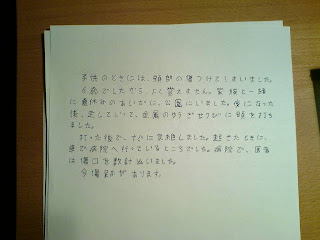 子供のときには、頭部の傷つけてしまいました。
6歳でしたから、よく覚えません。家族と一緒
に夏休みのあいかに、公園にいました。夜になった
後、走していて、金属の
に頭を打ち
ました。
打った後で、すぐに気絶しました。起きたときに、
車で病院へ行っているところでした。病院で、医者
は傷口を数針ぬいました。
今傷跡があります。